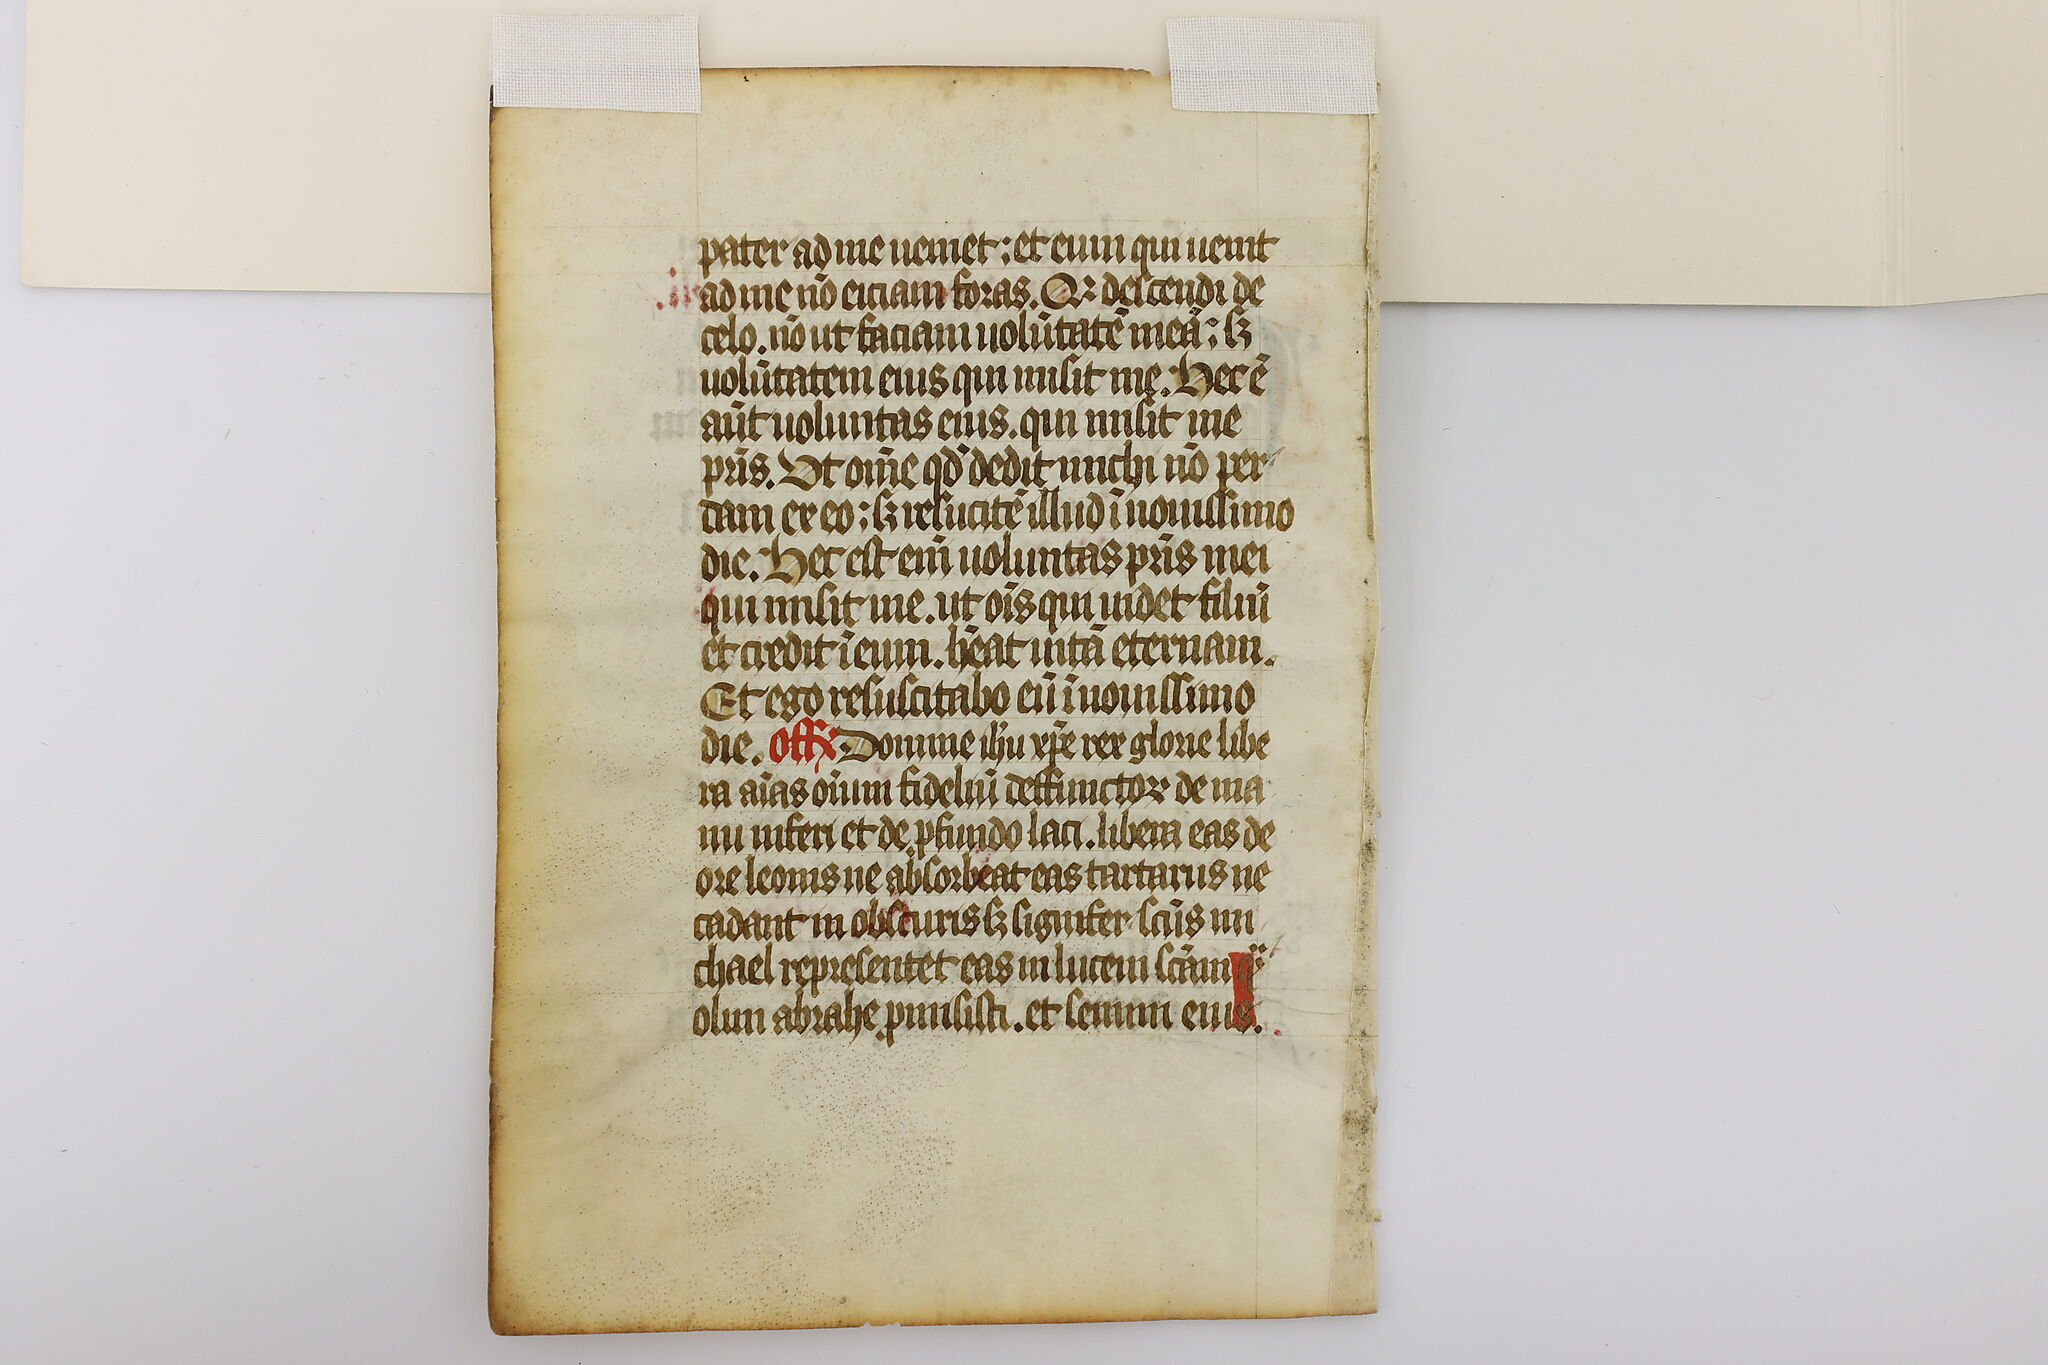 pater ad me ueniet ; et eum qui uenit
ad me nō eiciam foras. Qꝛ descendi de
celo. nō ut faciam uolūtatē meā ; sꝫ
uolūtatem eius qui misit me. Hec ē
aūt uoluntas eius. qui misit me
pr̄is. Ut om̄e qd̄ dedit michi nō per
dam ex eo ; sꝫ resucitē illud ī nouissimo
die. Hec est eni̅ uoluntas pr̄is mei
qui misit me. ut oīs qui uidet filiū
et credit ī eum. h̄eat uitā eternam.
Et ego resuscitabo eū ī nouissimo
die. Off Domine ih̄u xp̄e rex glorie libe
ra aīas oīum fideliū deffunctoꝝ de ma
nu inferi et de ꝓfundo laci. libera eas de
ore leonis ne absorbeat eas tartarus ne
cadant in obscuris sꝫ signifer sc̄us mi
chael representet eas in lucem sc̄am
olim abrahe ꝓmisisti. et semini eius.